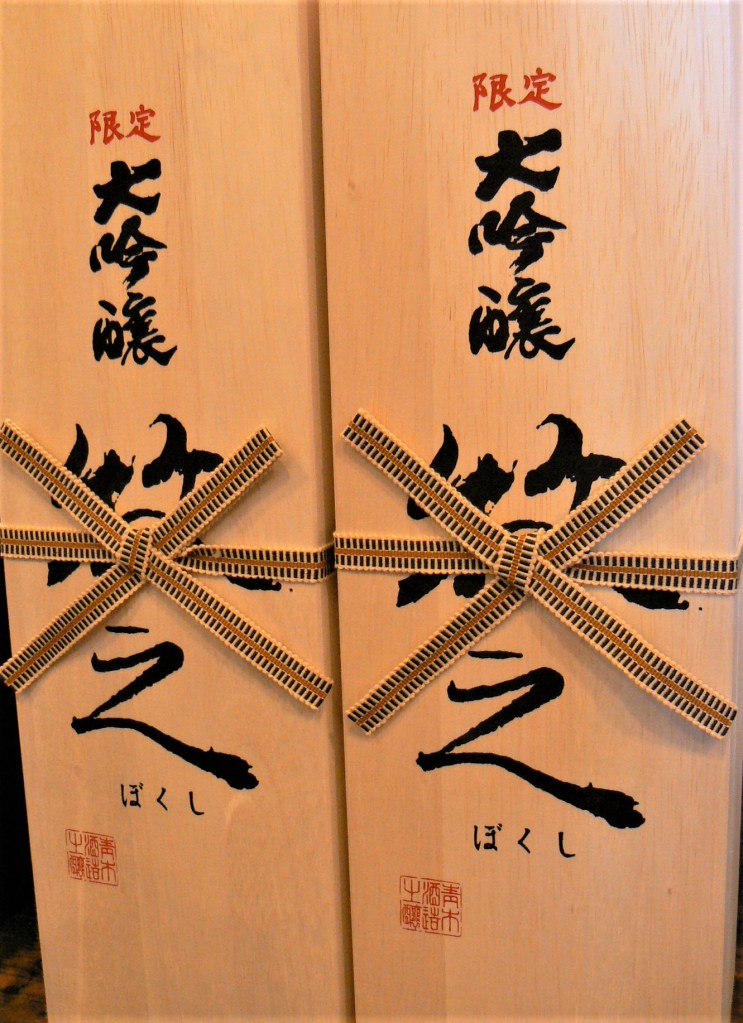 限定
大吟醸
牧之
ぼくし
青木
酒造
之醸
限定
大吟醸
牧之
ぼくし
青木
酒造
之醸